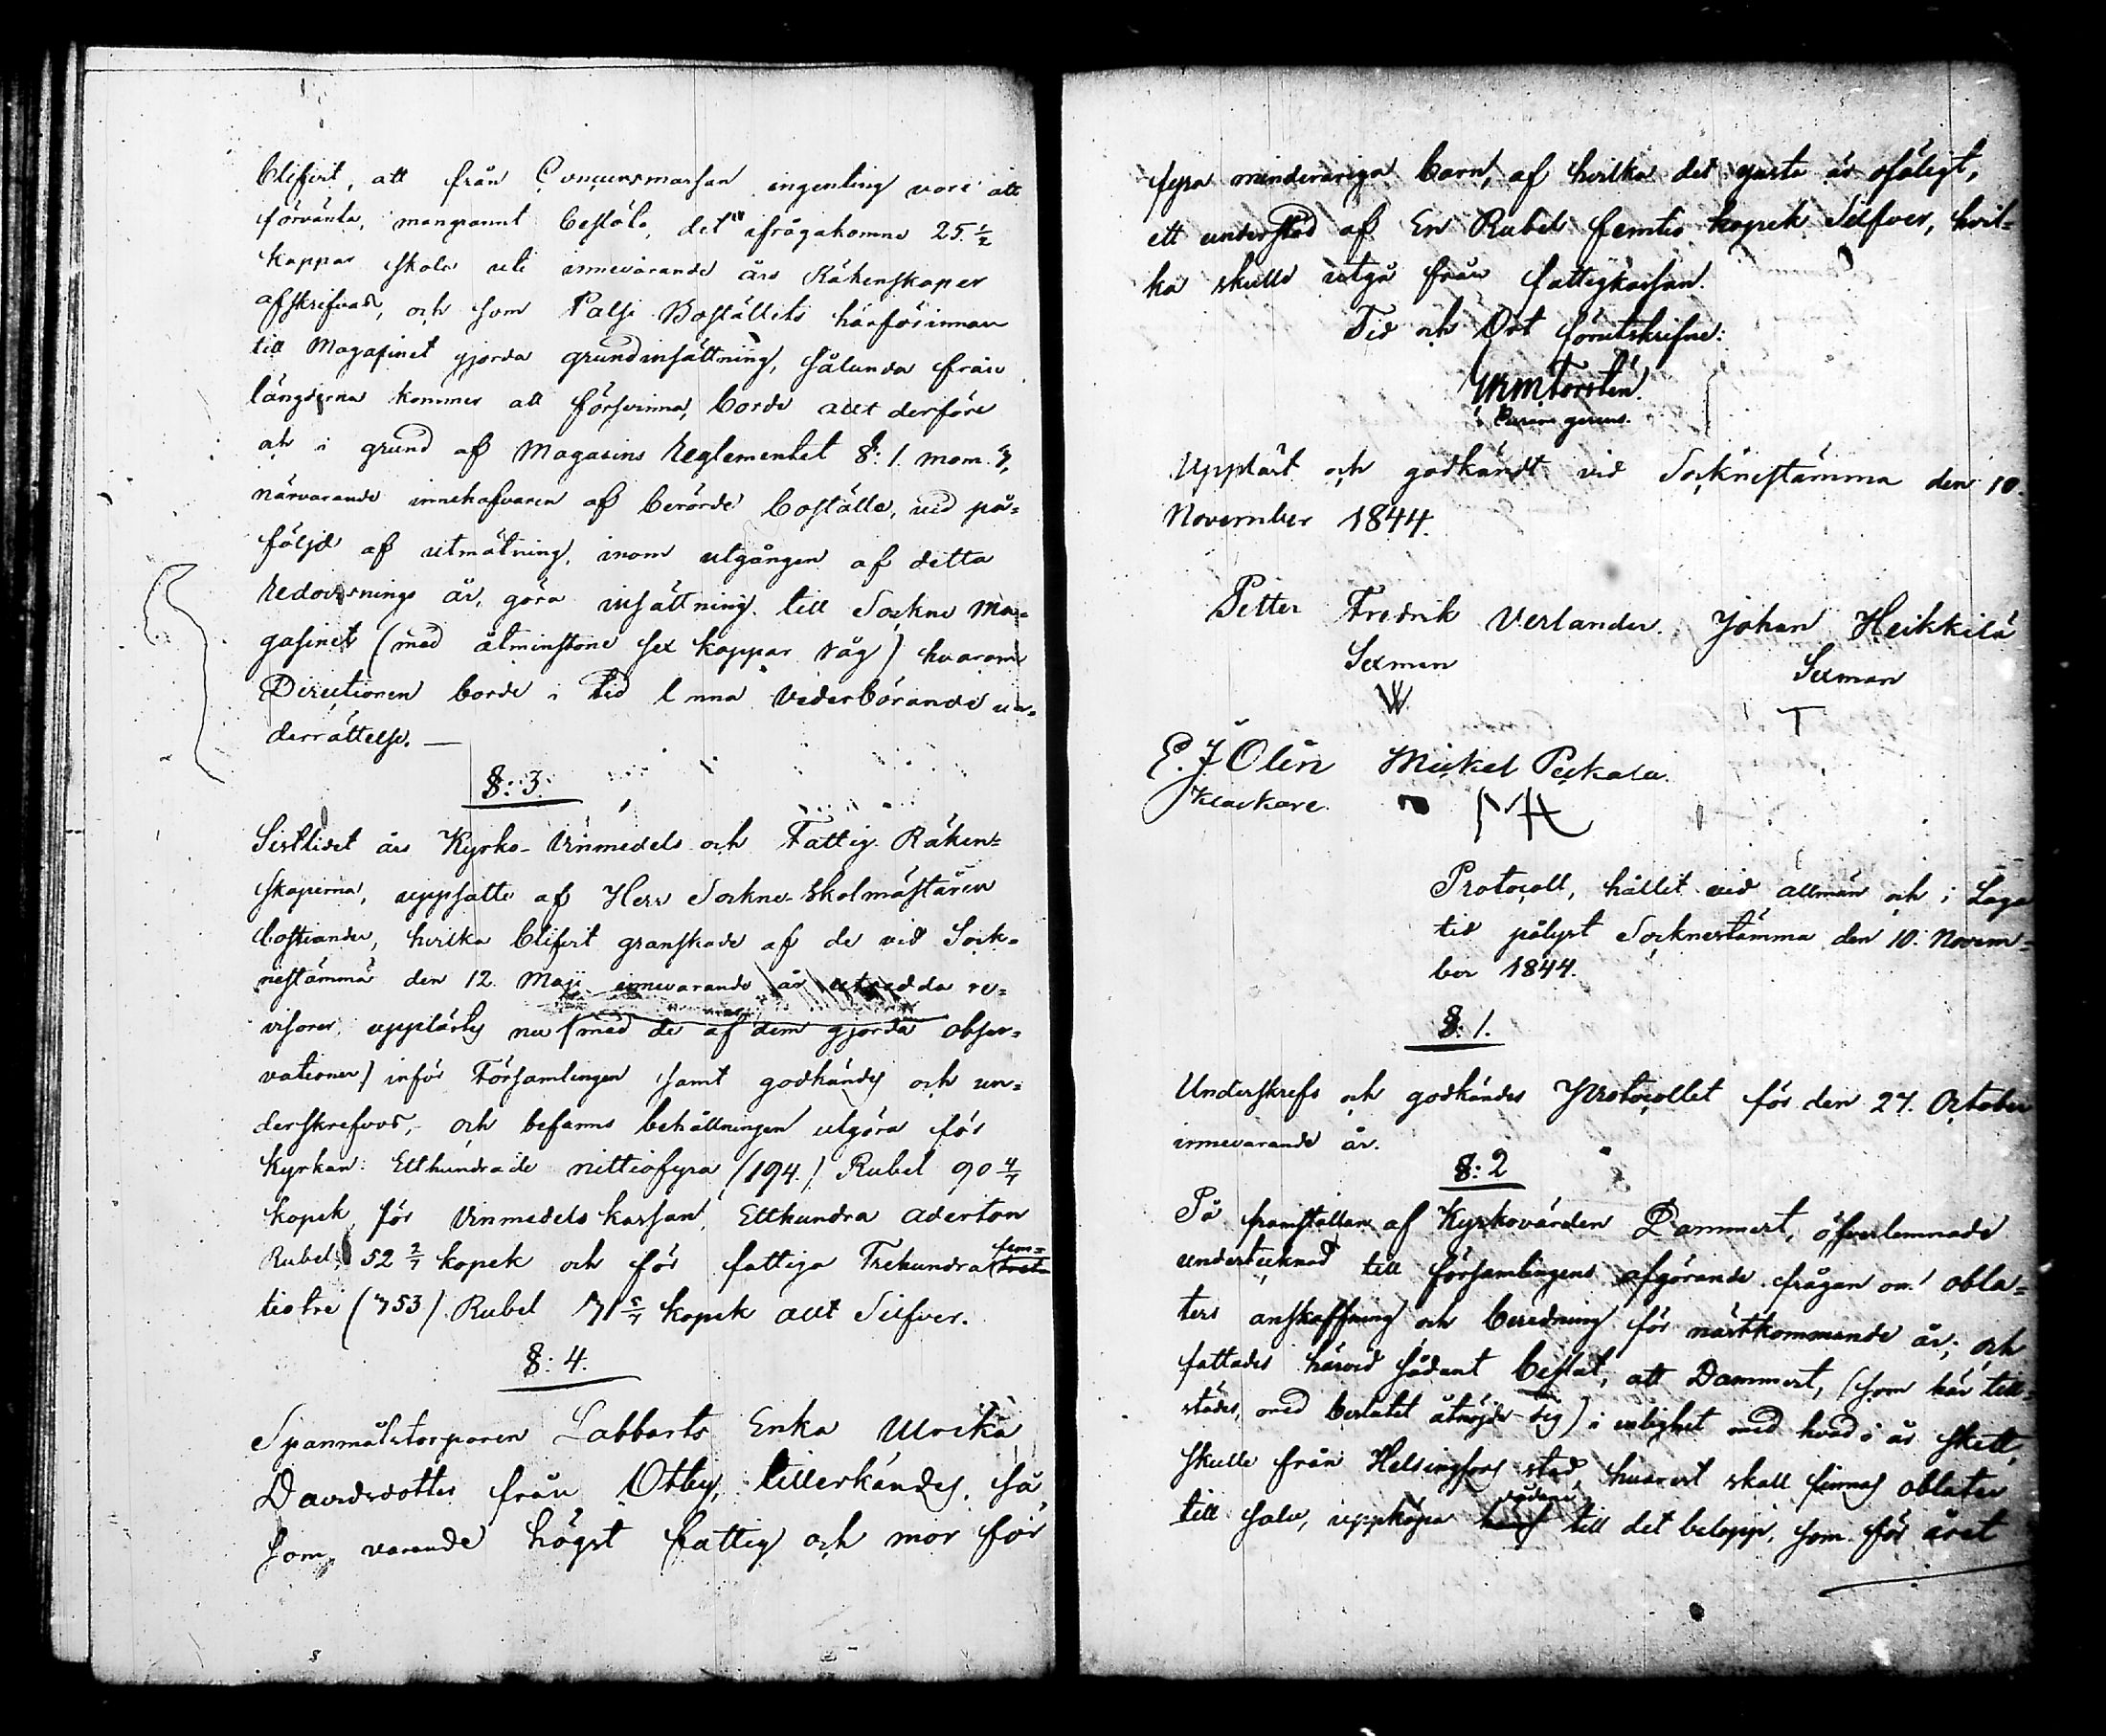 blifvit, att från Concursmassan ingenting vore att
förvänta, mangrannt beslöto, det ifrågakomne 25 ½
kappar skola uti innevarande års Räkenskaper
afskrifvas, och som Palsi Boställets härförinnan
till Magasinet gjorda grundinsättning, sålunda från
längderna kommer att försvinna, borde allt derföre
och i grund af Magasins Reglementet §: 1. mom. 7,
närvarande innehafvaren af berörde boställe, vid på-
följd af utmätning, inom utgången af detta
Redovisnings år, göra insättning till Sockne Ma-
gasinet (med åtminstone sex kappar råg) hvarom
Directionen borde i tid lemna Vederbörande un-
derrättelse. —
§: 3.
Sistlidet års Kyrko- Vinmedels och Fattig- Räken-
skaperna, uppsatte af Herr Sockne-Skolmästaren
Costiander, hvilka blifvit granskade af de vid Sock-
nestämma den 12. Maji innevarande år utsedda re-
visorer, upplästes nu (med de af dem gjorda obser-
vationer) inför Församlingen samt godkändes och un-
derskrefvos, och befanns behållningen utgöra för
Kyrkan: Etthundrade nittiofyra (194.) Rubel 90 4/7
kopek, för Vinmedels kassan, Etthundra aderton
Rubel, 52 2/7 kopek och för fattiga Trehundra fem-
tiotre (353) Rubel 71 5/7 kopek allt Silfver.
§: 4.
Spanmålstorparen Labbarts Enka Ulrika
Davidsdotter från Otby, tillerkändes, så
som varande högst fattig och mor för
fyra minderåriga barn, af hvilka det yngsta är ofärdigt,
ett understöd af En Rubel femtio kopek Silfver, hvil-
ka skulle utgå från fattigkassan.
Tid och Ort förutskrifne:
Torstén.
Uppläst och godkändt vid Socknestämma den 10.
November 1844.
Petter Fredrik Verlander. Johan Heikkilä
Sexman Sexman
E. J Olin Mickel Peckala.
Klockare.
Protocoll, hållet vid allmän och i Laga
tid pålyst Socknestämma den 10. Novem-
ber 1844.
§: 1.
Underskrefs och godkändes Protocollet för den 27. October
innevarande år.
§: 2
På framställan af Kyrkovärden Dammert, öfverlemnade
undertecknad till församlingens afgörande frågan om obla-
ters anskaffning och beredning för nästkommande år; och
fattades härvid sådant beslut, att Dammert, (som här till-
städes, med beslutet åtnöjde sig) i enlighet med hvad i år skett,
skulle från Helsingfors stad, hvarest skall finnas oblater
till salu, uppköpa sådane till det belopp, som för året